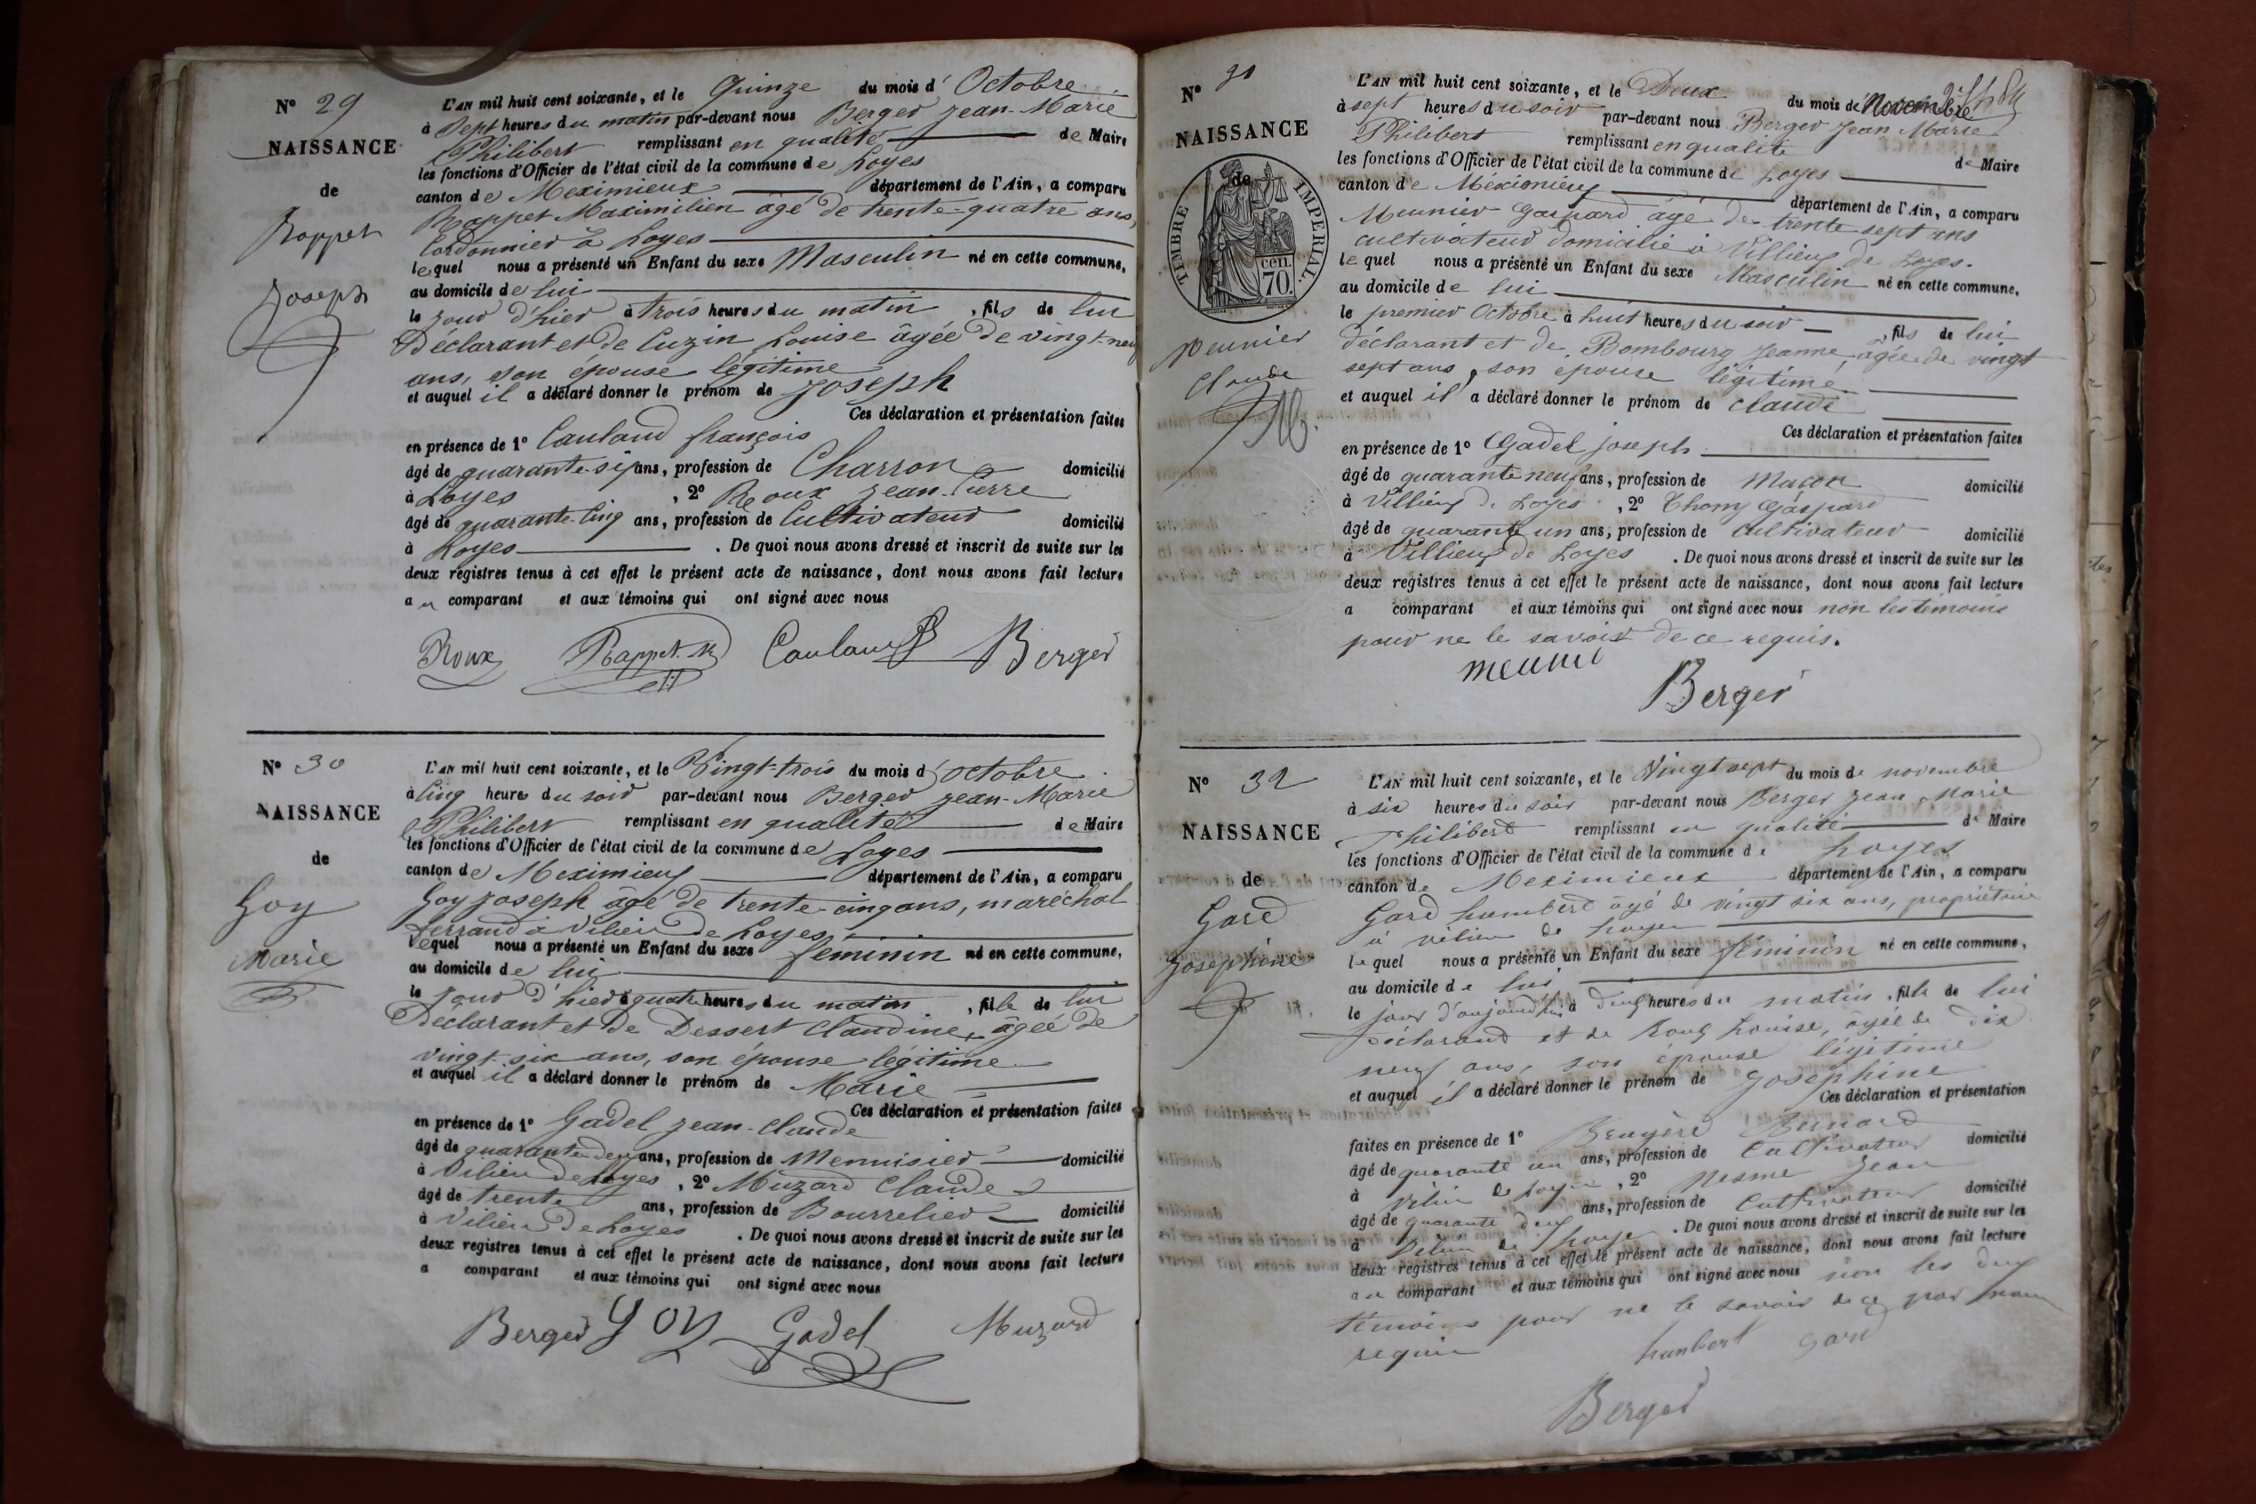 N° 29
NAISSANCE
de
Rappet
Joseph
L'AN mil huit cent soixante, et le Quinze du mois d'Octobre
à Sept heures du matin par-devant nous Berger Jean-Marie
Philibert remplissant en qualité de Maire
les fonctions d'Officier de l'état civil de la commune de Loyes
canton de Meximieux département de l'Ain, a comparu
Rappet Maximilien âgé de trente-quatre ans,
Cordonnier à Loyes
lequel nous a présenté un Enfant du sexe Masculin né en cette commune,
au domicile de lui
le jour d'hier à trois heures du matin, fils de lui
Déclarant et de Cuzin Louise âgée de vingt-neuf
ans, son épouse légitime
et auquel il a déclaré donner le prénom de Joseph
Ces déclaration et présentation faites
en présence de 1° Cauland françois
âgé de quarante-six ans, profession de Charron domicilié
à Loyes, 2° Roux Jean-Pierre
âgé de quarante-Cinq ans, profession de Cultivateur domicilié
à Loyes. De quoi nous avons dressé et inscrit de suite sur les
deux registres tenus à cet effet le présent acte de naissance, dont nous avons fait lecture
au comparant et aux témoins qui ont signé avec nous
Roux Rappet M Cauland Berger
N° 30
NAISSANCE
de
Goy
Marie
L'AN mil huit cent soixante, et le Vingt-trois du mois d'octobre
à Cinq heures du soir par-devant nous Berger Jean-Marie
Philibert remplissant en qualité de Maire
les fonctions d'Officier de l'état civil de la commune de Loyes
canton de Meximieux département de l'Ain, a comparu
Goy Joseph âgé de trente-cinq ans, maréchal
ferrand à Vilieu de Loyes
lequel nous a présenté un Enfant du sexe féminin né en cette commune,
au domicile de lui
le jour d'hier à quatre heures du matin, fille de lui
Déclarant et de Dessert Claudine, âgée de
vingt-six ans, son épouse légitime
et auquel il a déclaré donner le prénom de Marie
Ces déclaration et présentation faites
en présence de 1° Gadel Jean-Claude
âgé de quarante deux ans, profession de Menuisier domicilié
à Vilieu de Loyes, 2° Muzard Claude
âgé de trente ans, profession de Bourrelier domicilié
à Vilieu de Loyes. De quoi nous avons dressé et inscrit de suite sur les
deux registres tenus à cet effet le présent acte de naissance, dont nous avons fait lecture
a comparant et aux témoins qui ont signé avec nous
Berger GOY Gadel Muzard
N° 31
NAISSANCE
de
TIMBRE IMPÉRIAL
70 cen.
Meunier
Claude
L'AN mil huit cent soixante, et le Deux du mois de Novembre
à sept heures du soir par-devant nous Berger Jean Marie
Philibert remplissant en qualité de Maire
les fonctions d'Officier de l'état civil de la commune de Loyes
canton de Méximieux département de l'Ain, a comparu
Meunier Gaspard âgé de trente sept ans
cultivateur domicilié à Villieux de Loyes.
lequel nous a présenté un Enfant du sexe Masculin né en cette commune,
au domicile de lui
le premier Octobre à huit heures du soir, fils de lui
déclarant et de Bombourg Jeanne âgée de vingt
sept ans, son épouse légitime
et auquel il a déclaré donner le prénom de Claude
Ces déclaration et présentation faites
en présence de 1° Gadel Joseph
âgé de quarante neuf ans, profession de Maçon domicilié
à Villieux de Loyes, 2° Thomy Gaspard
âgé de quarante un ans, profession de cultivateur domicilié
à Villieux de Loyes. De quoi nous avons dressé et inscrit de suite sur les
deux registres tenus à cet effet le présent acte de naissance, dont nous avons fait lecture
a comparant et aux témoins qui ont signé avec nous non les témoins
pour ne le savoir de ce requis.
meunie
Berger
N° 32
NAISSANCE
de
Gard
Josephine
L'AN mil huit cent soixante, et le Vingt sept du mois de novembre
à six heures du soir par-devant nous Berger Jean Marie
Philibert remplissant en qualité de Maire
les fonctions d'Officier de l'état civil de la commune de Loyes
canton de Meximieux département de l'Ain, a comparu
Gard humbert âgé de vingt six ans, propriétaire
à vilieu de Loyes
lequel nous a présenté un Enfant du sexe féminin né en cette commune,
au domicile de lui
le jour d'aujourd'hui à deux heures du matin, fille de lui
déclarant et de Roux Louise, âgée de dix
neuf ans, son épouse légitime
et auquel il a déclaré donner le prénom de Josephine
Ces déclaration et présentation
faites en présence de 1° Bruyère Bernard
âgé de quarante un ans, profession de Cultivateur domicilié
à Vilieu de Loyes, 2° Mesme Jean
âgé de quarante deux ans, profession de Cultivateur domicilié
à Vilieu de Loyes. De quoi nous avons dressé et inscrit de suite sur les
deux registres tenus à cet effet le présent acte de naissance, dont nous avons fait lecture
au comparant et aux témoins qui ont signé avec nous non les deux
témoins pour ne le savoir de ce par nous
requis
humbert gard
Berger